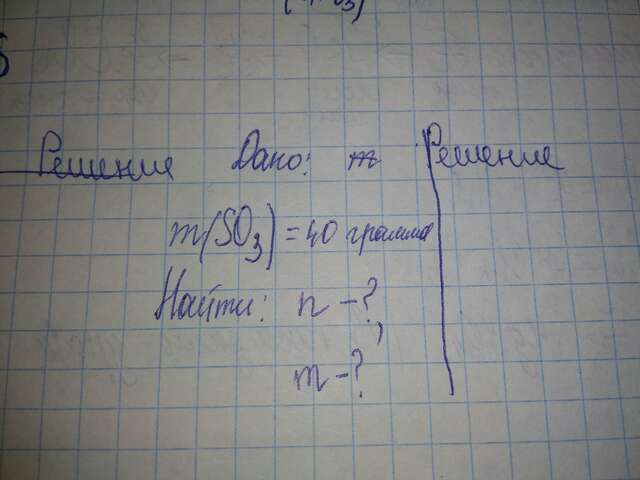 Решение Дано: m Решение
m(SO3) = 40 грамма
Найти: n - ?,
m - ?